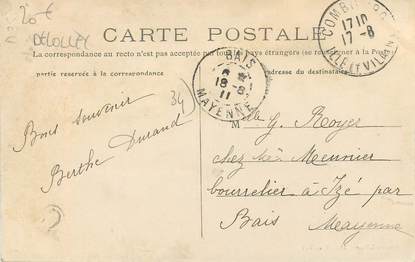 20€
DELOLLEY
CARTE POSTALE
La correspondance au recto n'est pas acceptée par tous les pays étrangers (se renseigner à la Poste)
partie reservée à la correspondance
adresse du destinataire
COMBOURG
17 10
17-8
ILLE ET VILAINE
BAIS
18-8
11
MAYENNE
34
Bons souvenir
Berthe Durand
M
G. Royer
chez Meunier
bourrelier à Izé par
Bais Mayenne